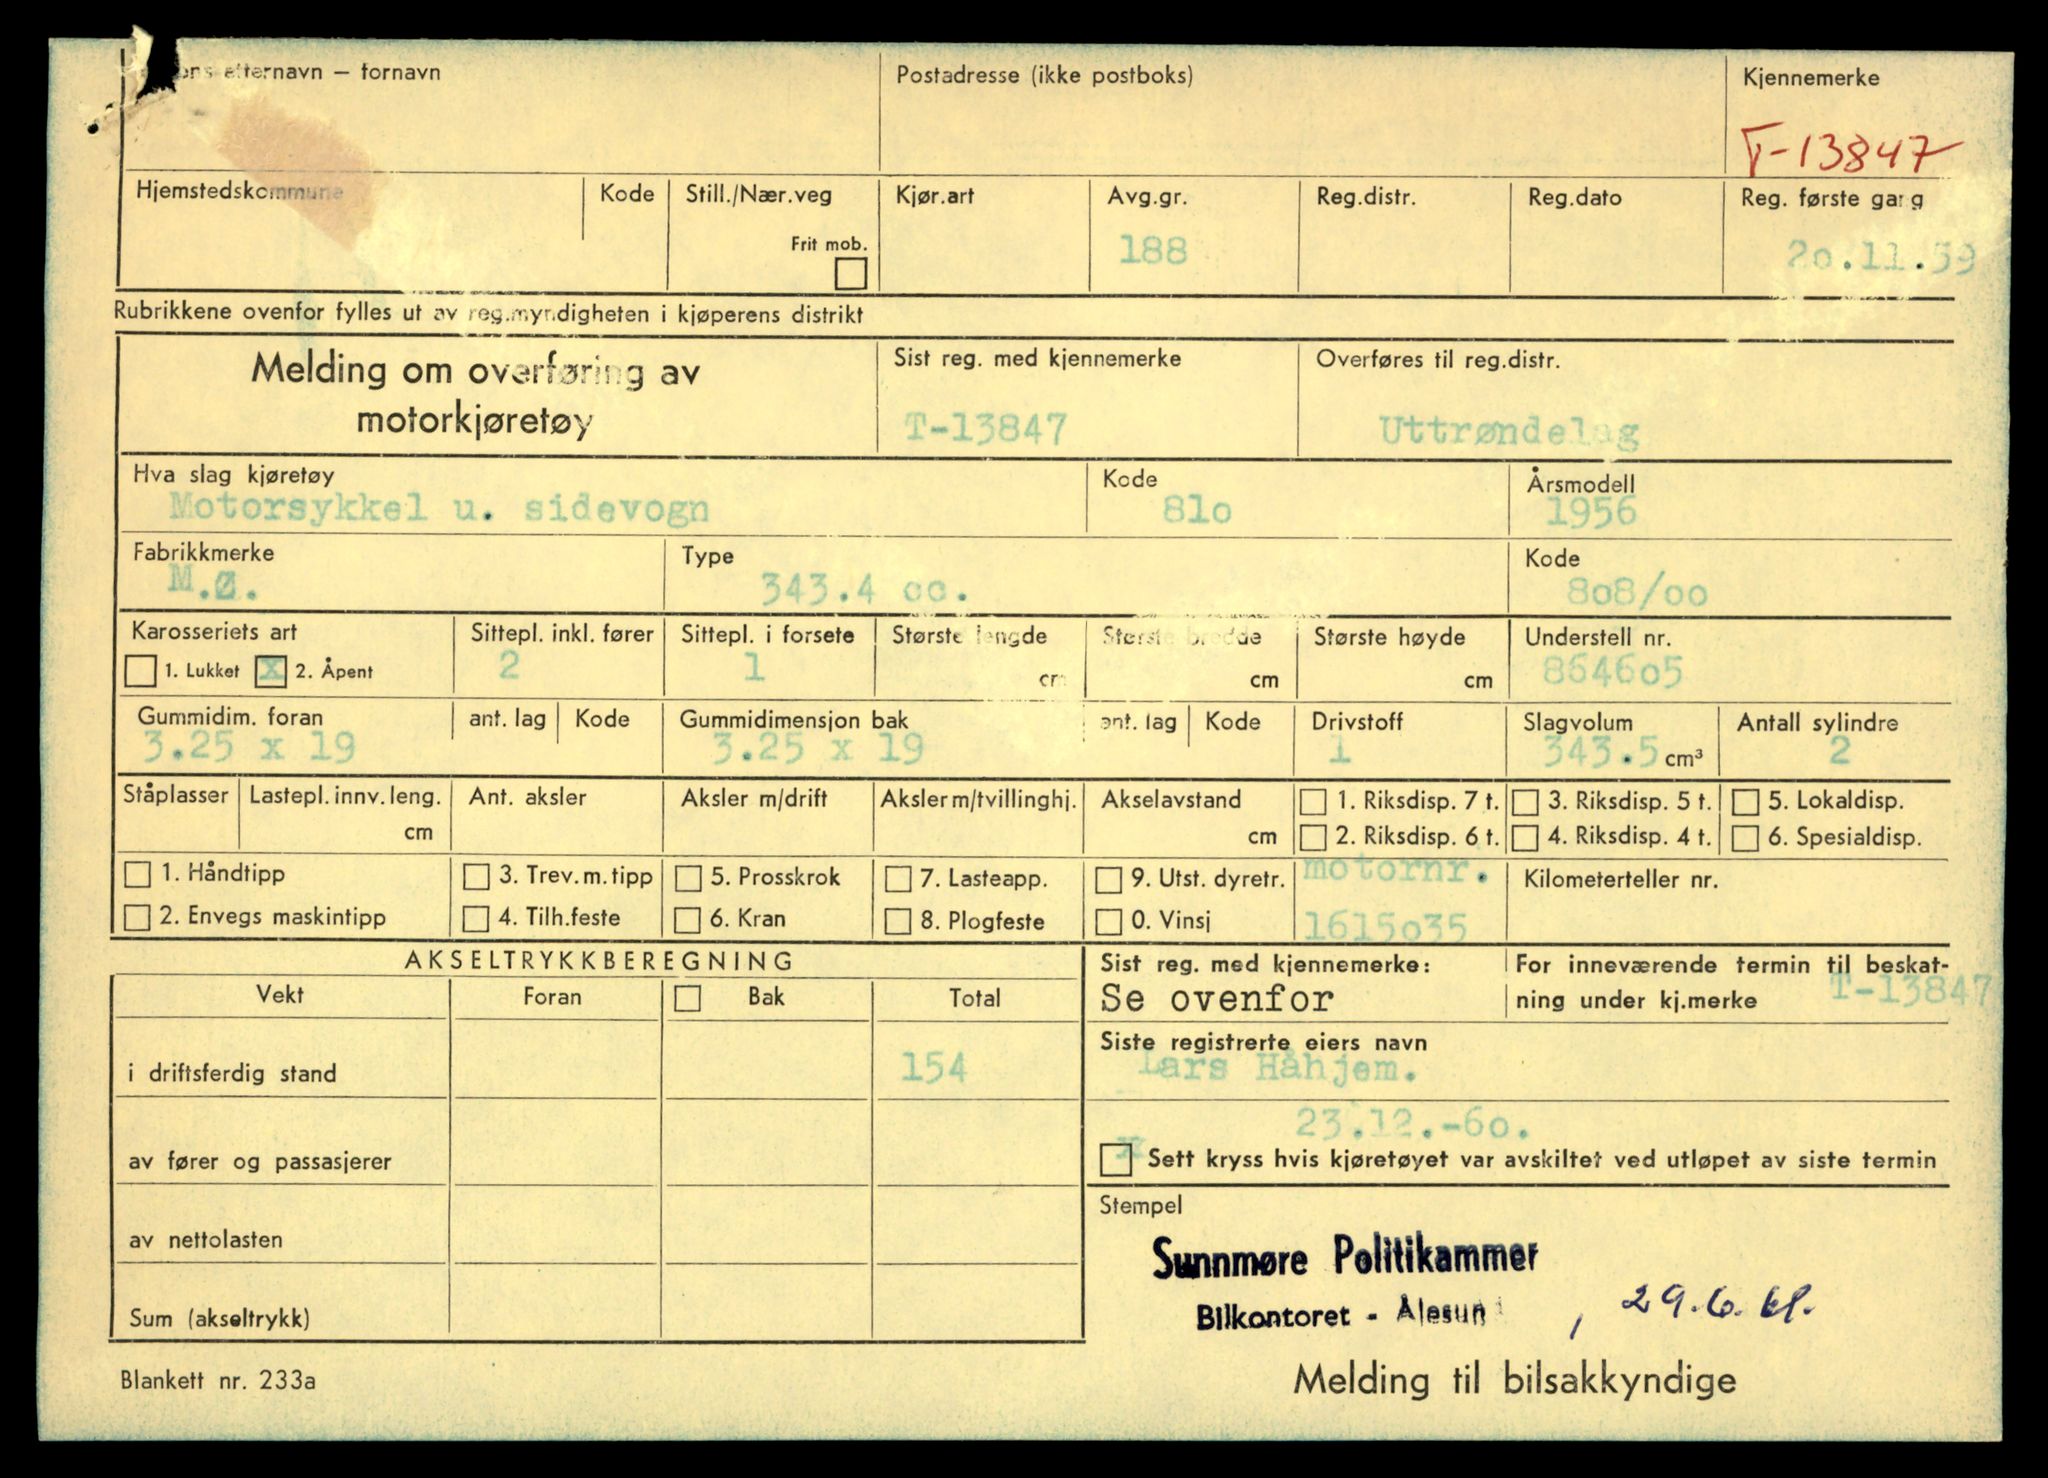 etternavn – fornavn
Postadresse (ikke postboks)
Kjennemerke
T-13847
Hjemstedskommune
Kode
Still./Nær.veg
Frit mob.
Kjør.art
Avg.gr.
188
Reg.distr.
Reg.dato
Reg. første gang
20.11.59
Rubrikkene ovenfor fylles ut av reg.myndigheten i kjøperens distrikt
Melding om overføring av
motorkjøretøy
Sist reg. med kjennemerke
T-13847
Overføres til reg.distr.
Uttrøndelag
Hva slag kjøretøy
Motorsykkel u. sidevogn
Kode
81o
Årsmodell
1956
Fabrikkmerke
M.Ø.
Type
343.4 cc.
Kode
8o8/oo
Karosseriets art
1. Lukket x 2. Åpent
Sittepl. inkl. fører
2
Sittepl. i forsete
1
Største lengde
cm
Største bredde
cm
Største høyde
cm
Understell nr.
8646o5
Gummidim. foran
3.25 x 19
ant. lag
Kode
Gummidimensjon bak
3.25 x 19
ant. lag
Kode
Drivstoff
1
Slagvolum
343.5 cm³
Antall sylindre
2
Ståplasser
Lastepl. innv. leng.
cm
Ant. aksler
Aksler m/drift
Aksler m/tvillinghj.
Akselavstand
cm
1. Riksdisp. 7 t.
2. Riksdisp. 6 t.
3. Riksdisp. 5 t.
4. Riksdisp. 4 t.
5. Lokaldisp.
6. Spesialdisp.
1. Håndtipp
2. Envegs maskintipp
3. Trev. m. tipp
4. Tilh.feste
5. Prosskrok
6. Kran
7. Lasteapp.
8. Plogfeste
9. Utst. dyretr.
0. Vinsj
motornr.
1615o35
Kilometerteller nr.
AKSELTRYKKBEREGNING
Vekt
Foran
Bak
Total
i driftsferdig stand
154
av fører og passasjerer
av nettolasten
Sum (akseltrykk)
Sist reg. med kjennemerke:
Se ovenfor
For inneværende termin til beskat-
ning under kj.merke T-13847
Siste registrerte eiers navn
Lars Håhjem.
23.12.-6o.
x Sett kryss hvis kjøretøyet var avskiltet ved utløpet av siste termin
Stempel
Sunnmøre Politikammer
Bilkontoret - Ålesun , 29.6.61.
Blankett nr. 233a
Melding til bilsakkyndige